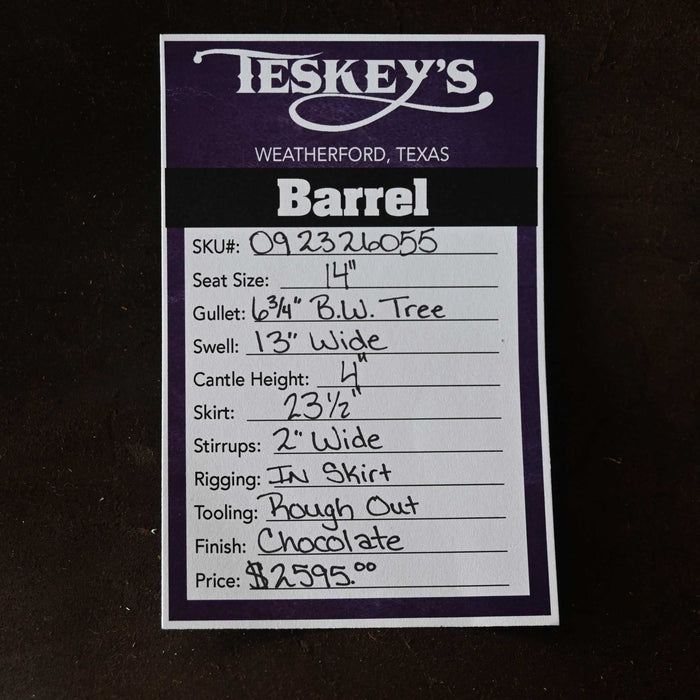 TESKEY'S
WEATHERFORD, TEXAS
Barrel
SKU#: 092326055
Seat Size: 14"
Gullet: 6 3/4" B.W. Tree
Swell: 13" Wide
Cantle Height: 4"
Skirt: 23 1/2"
Stirrups: 2" Wide
Rigging: IN Skirt
Tooling: Rough Out
Finish: Chocolate
Price: $2595.00